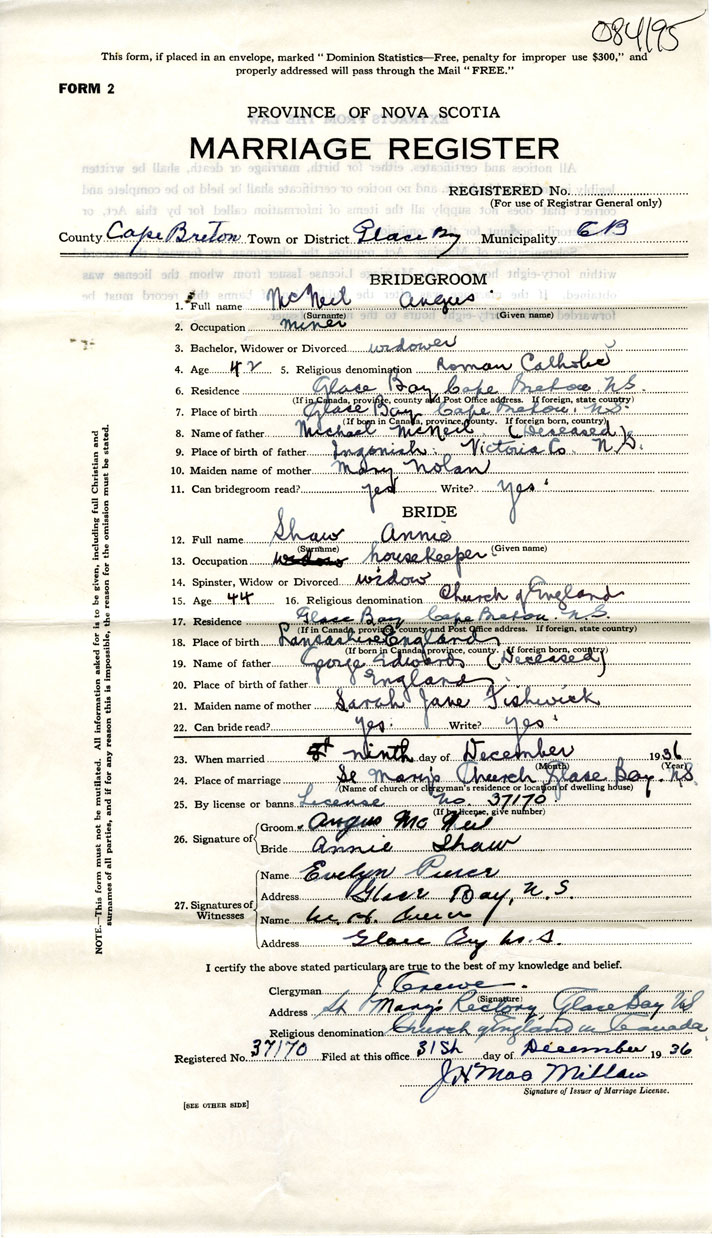 084195
This form, if placed in an envelope, marked "Dominion Statistics—Free, penalty for improper use $300," and
properly addressed will pass through the Mail "FREE."
FORM 2
PROVINCE OF NOVA SCOTIA
MARRIAGE REGISTER
REGISTERED No.
(For use of Registrar General only)
County Cape Breton Town or District Glace Bay Municipality CB
BRIDEGROOM
1. Full name McNeil Angus
(Surname) (Given name)
2. Occupation miner
3. Bachelor, Widower or Divorced widower
4. Age 42 5. Religious denomination Roman Catholic
6. Residence Glace Bay Cape Breton N.S.
(If in Canada, province, county and Post Office address. If foreign, state country)
7. Place of birth Glace Bay Cape Breton. N.S.
(If born in Canada, province, county. If foreign born, country)
8. Name of father Michael McNeil (Deceased)
9. Place of birth of father Ingonish. Victoria Co. N.S.
10. Maiden name of mother Mary Nolan
11. Can bridegroom read? yes Write? yes
BRIDE
12. Full name Shaw Annie
(Surname) (Given name)
13. Occupation widow housekeeper
14. Spinster, Widow or Divorced widow
15. Age 44 16. Religious denomination Church of England
17. Residence Glace Bay Cape Breton N.S.
(If in Canada, province, county and Post Office address. If foreign, state country)
18. Place of birth Lancashire England
(If born in Canada, province, county. If foreign born, country)
19. Name of father George Edwards (Deceased)
20. Place of birth of father England
21. Maiden name of mother Sarah Jane Fishwick
22. Can bride read? yes. Write? yes
23. When married ninth day of December 1936
(Month) (Year)
24. Place of marriage St Mary's Church Glace Bay. N.S.
(Name of church or clergyman's residence or location of dwelling house)
25. By license or banns License No. 37170
(If by license, give number)
26. Signature of
Groom Angus Mc Neil
Bride Annie Shaw
27. Signatures of Witnesses
Name Evelyn Pierce
Address Glace Bay, N.S.
Name W. H. Pierce
Address Glace Bay N.S.
I certify the above stated particulars are true to the best of my knowledge and belief.
Clergyman J Crewe.
(Signature)
Address St Mary's Rectory, Glace Bay NS
Religious denomination Church of England in Canada
Registered No. 37170 Filed at this office 31St day of December 1936
J H Mac Millan
Signature of Issuer of Marriage License.
[SEE OTHER SIDE]
NOTE.—This form must not be mutilated. All information asked for is to be given, including full Christian and
surnames of all parties, and if for any reason this is impossible, the reason for the omission must be stated.